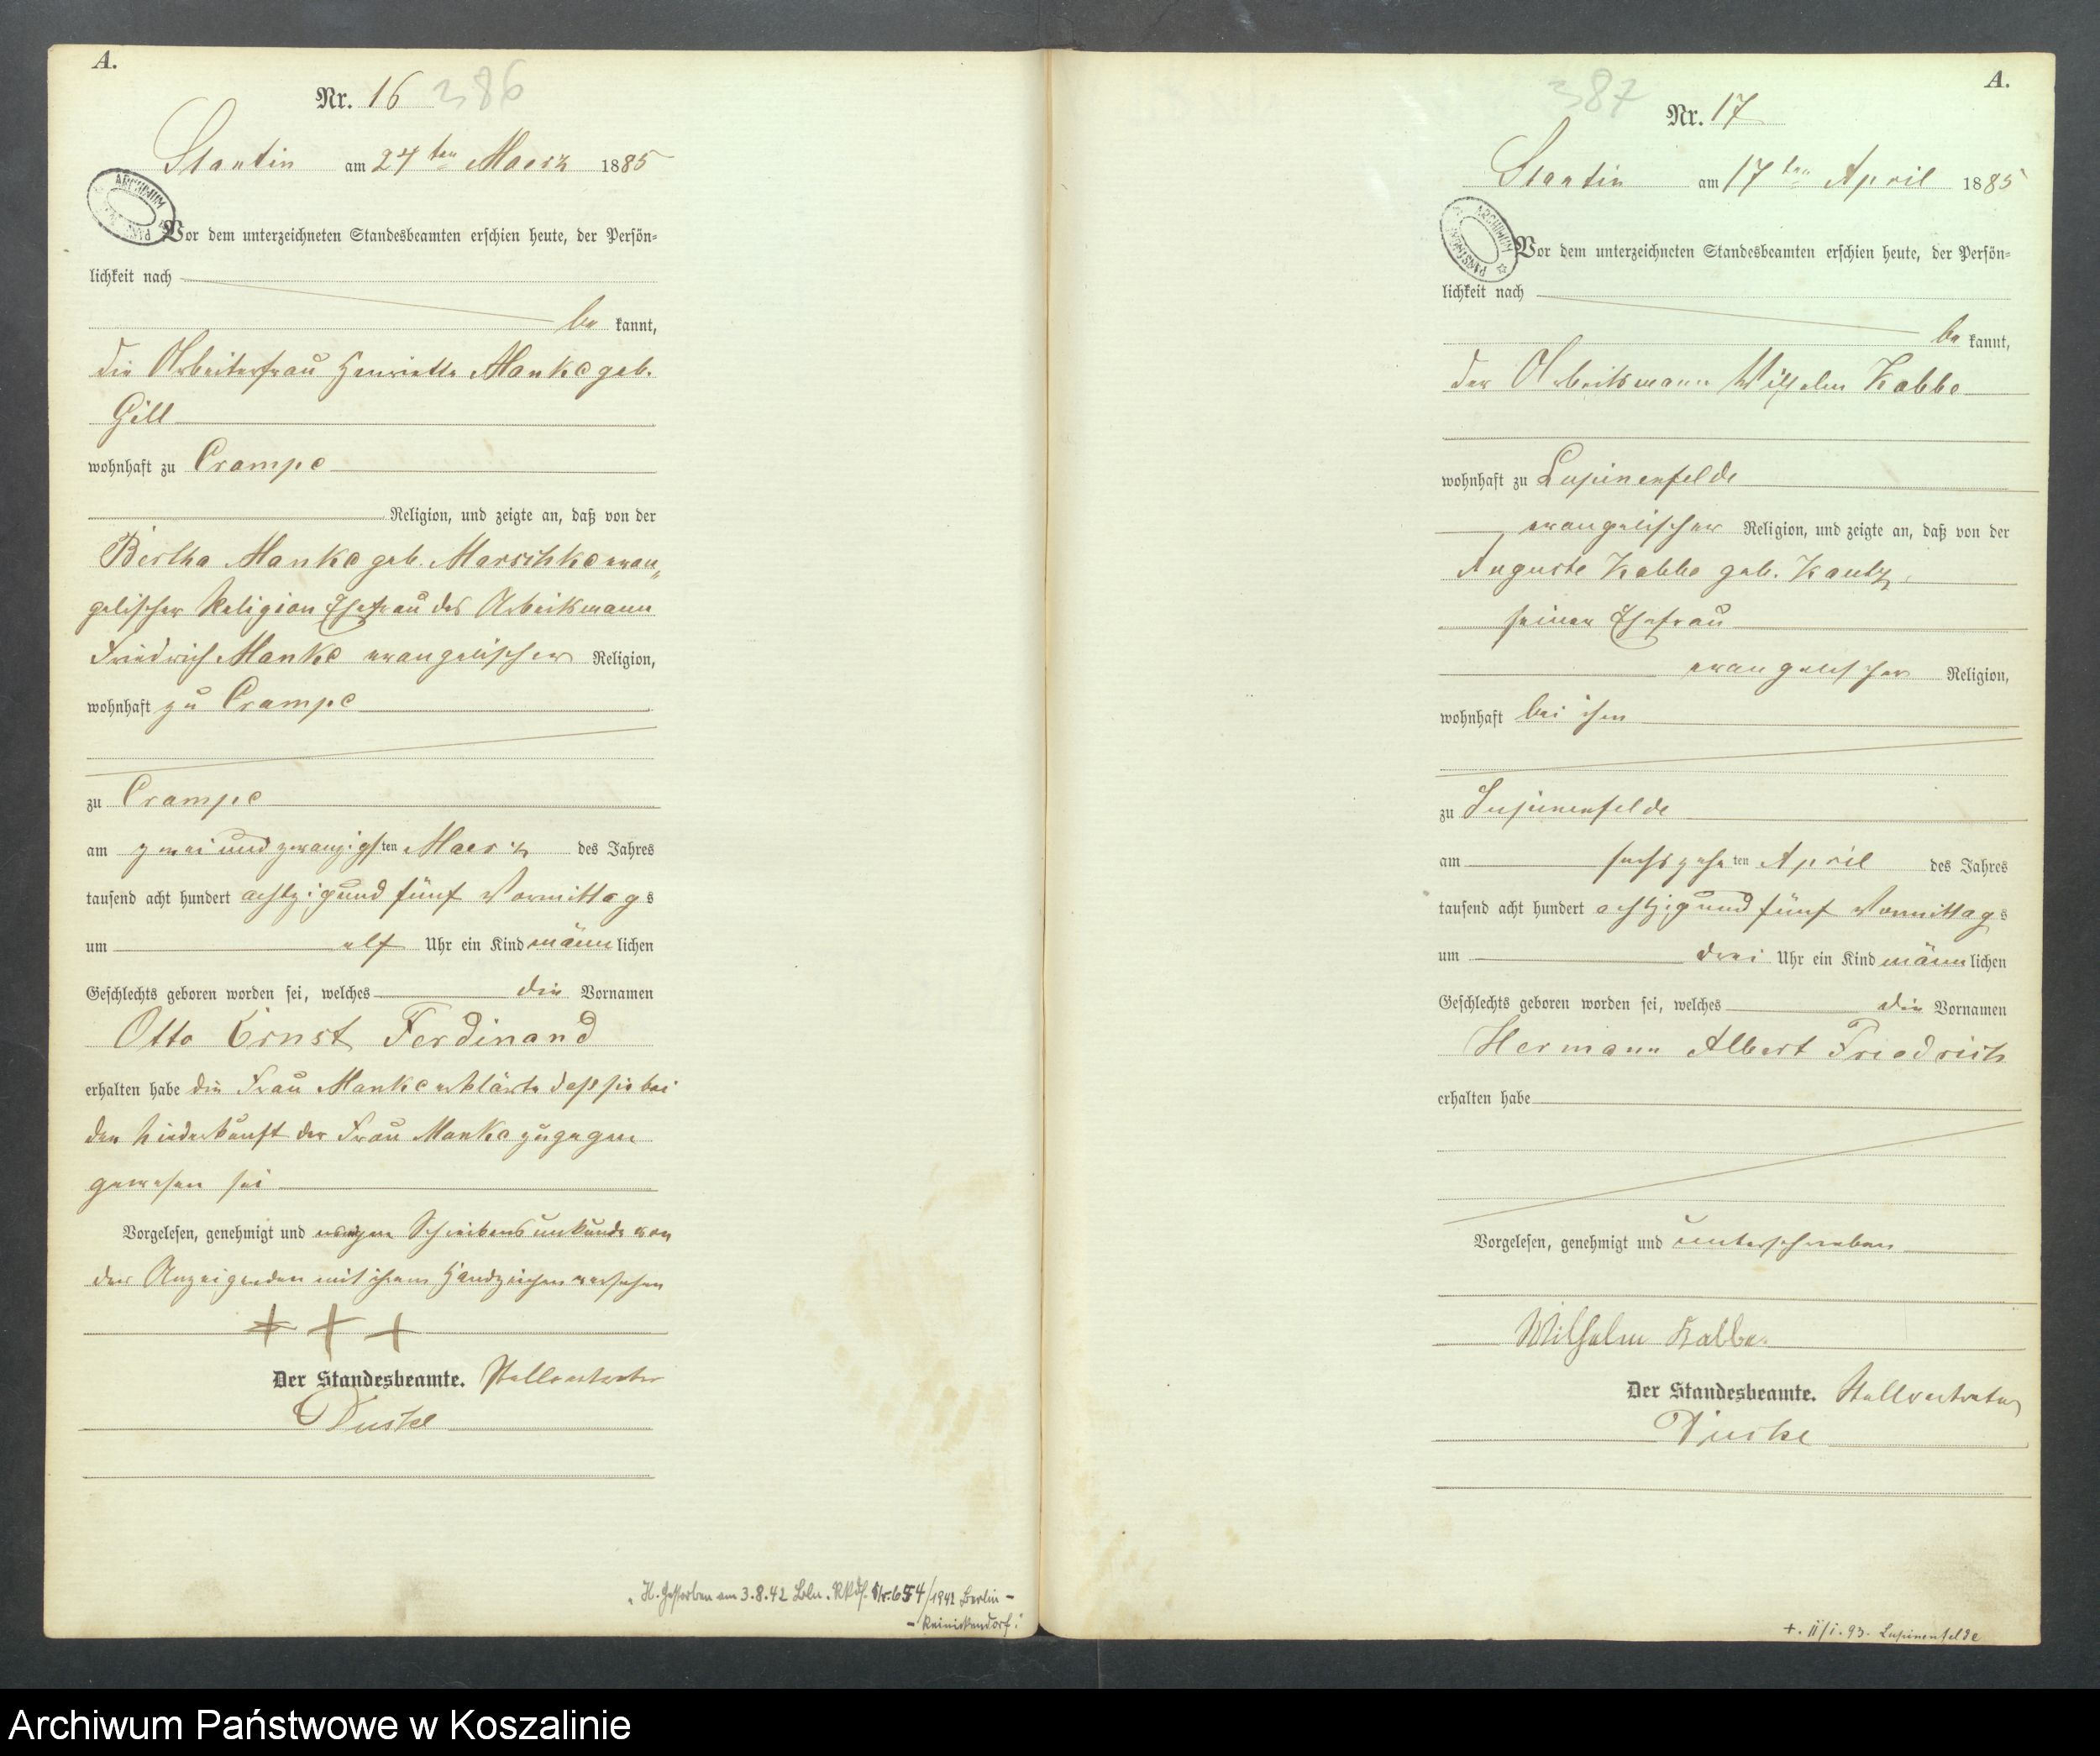 A.
Nr. 16 386
Stantin am 24ten Maerz 1885
ARCHIWUM
Vor dem unterzeichneten Standesbeamten erschien heute, der Persön=
lichkeit nach
be kannt,
die Arbeiterfrau Henriette Manke geb.
Gill
wohnhaft zu Crampe
Religion, und zeigte an, daß von der
Bertha Manke geb. Marschke evan„
gelischer Religion Ehefrau des Arbeitsmann
Friedrich Manke evangelischer Religion,
wohnhaft zu Crampe
zu Crampe
am zwei und zwanzigsten Maerz des Jahres
tausend acht hundert achtzig und fünf Vormittags
um elf Uhr ein Kind männlichen
Geschlechts geboren worden sei, welches die Vornamen
Otto Ernst Ferdinand
erhalten habe die Frau Manke erklärte daß sie bei
der Niederkunft der Frau Manke zugegen
gewesen sei
Vorgelesen, genehmigt und wegen Schreibensunkunde von
der Anzeigenden mit ihrem Handzeichen versehen
+ + +
Der Standesbeamte. Stellvertreter
H. Gestorben am 3.8.42 Bln. Rkdf. Nr. 654/1942 Berlin -
- Reinickendorf.
387 A.
Nr. 17
Stantin am 17ten April 1885
ARCHIWUM PAŃSTWOWE
Vor dem unterzeichneten Standesbeamten erschien heute, der Persön=
lichkeit nach
be kannt,
der Arbeitsmann Wilhelm Kabbe
wohnhaft zu Lupinenfelde
evangelischer Religion, und zeigte an, daß von der
Auguste Kabbe geb. Kautz
seiner Ehefrau
evangelischer Religion,
wohnhaft bei ihm
zu Lupinenfelde
am sechszehnten April des Jahres
tausend acht hundert achtzig und fünf Vormittags
um drei Uhr ein Kind männlichen
Geschlechts geboren worden sei, welches die Vornamen
Hermann Albert Friedrich
erhalten habe
Vorgelesen, genehmigt und unterschrieben
Wilhelm Kabbe
Der Standesbeamte. Stellvertreter
+. 11/1. 93. Lupinenfelde
Archiwum Państwowe w Koszalinie